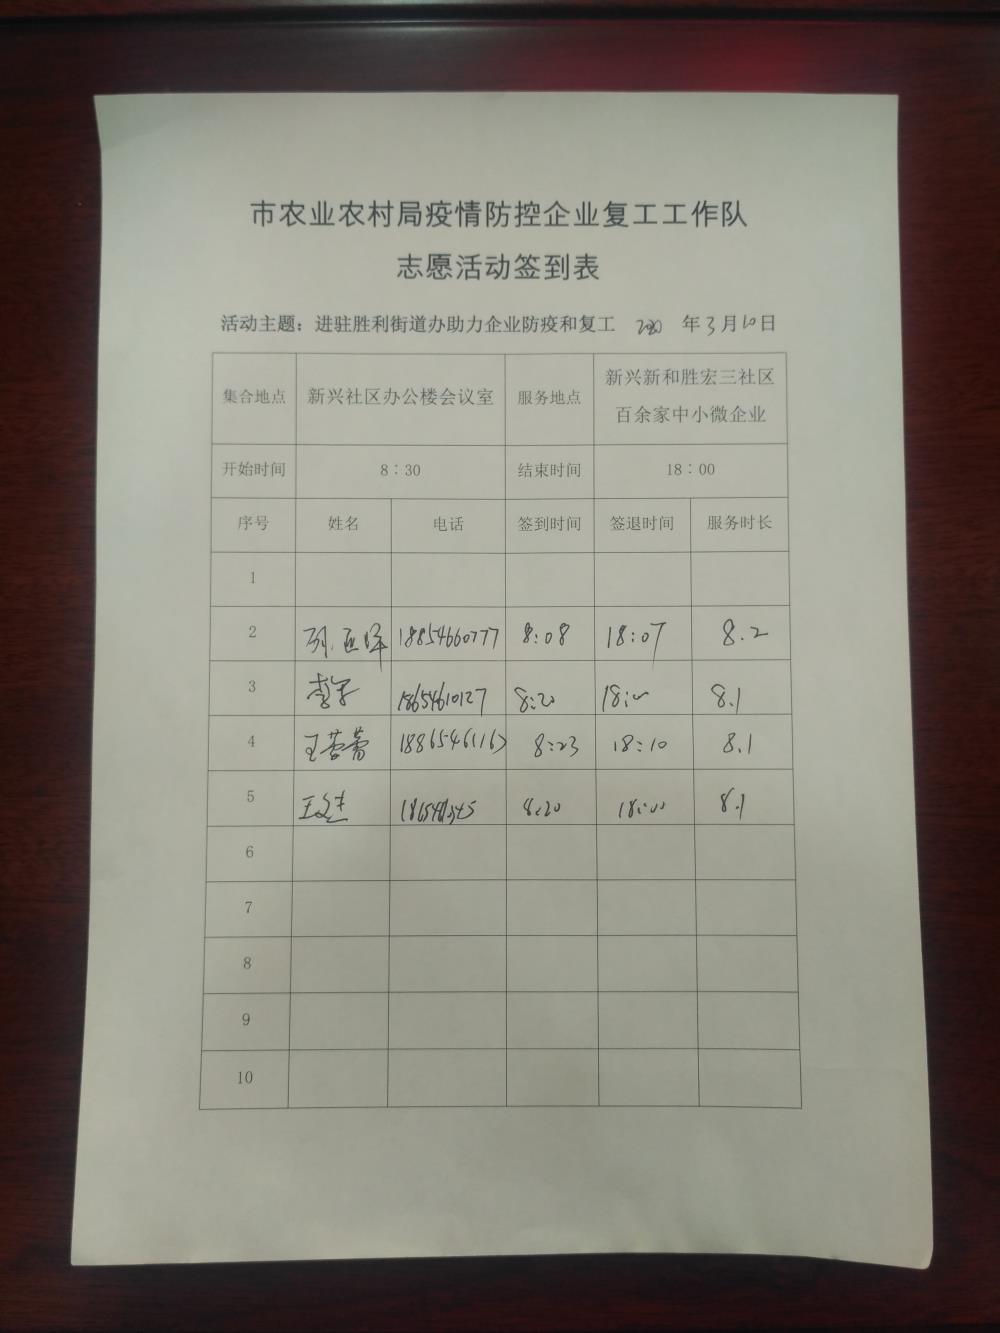 市农业农村局疫情防控企业复工工作队
志愿活动签到表
活动主题：进驻胜利街道办助力企业防疫和复工 2020 年3月10日
集合地点 新兴社区办公楼会议室 服务地点 新兴新和胜宏三社区
百余家中小微企业
开始时间 8：30 结束时间 18：00
序号 姓名 电话 签到时间 签退时间 服务时长
1
2 18854660777 8:08 18:07 8.2
3 18654610127 8:20 8.1
4 王蓉蓉 8:23 18:10 8.1
5 8:20 18:00 8.1
6
7
8
9
10